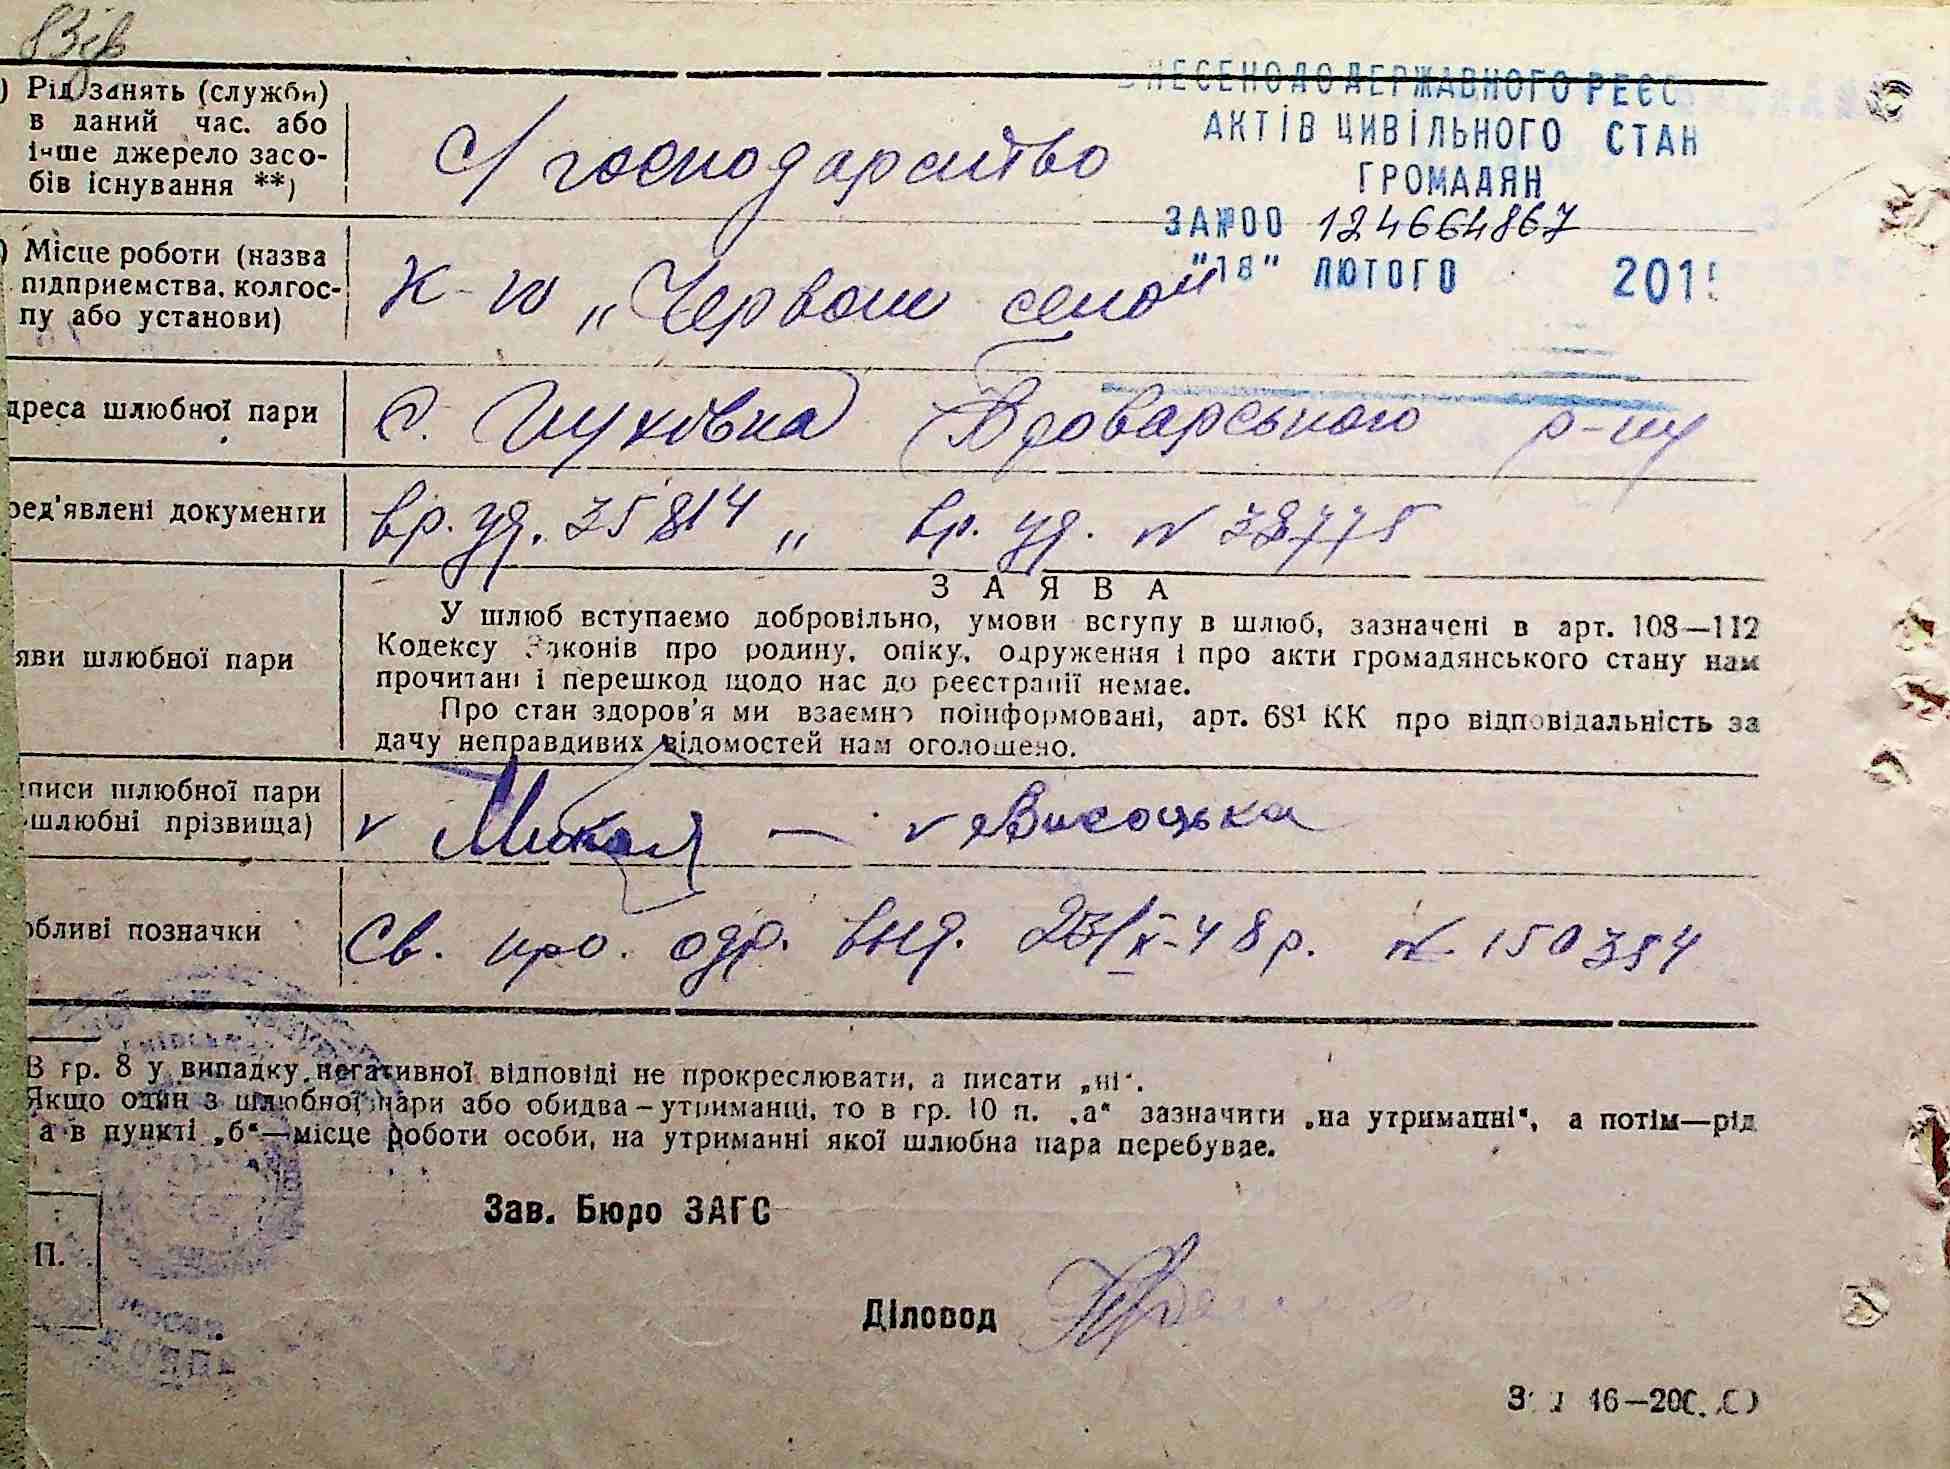 ) Рід занять (служби)
в даний час, або
інше джерело засо-
бів існування **)
с/господарство
НЕСЕНО ДО ДЕРЖАВНОГО РЕЄС
АКТІВ ЦИВІЛЬНОГО СТАН
ГРОМАДЯН
ЗА №00 124664867
"18" ЛЮТОГО 201
) Місце роботи (назва
підприємства, колгос-
пу або установи)
к-п „Червоне село"
дреса шлюбної пари
с. Броварського р-ну
ред'явлені документи
вр. уд. 35814 „ вр. уд. № 38775
ЗАЯВА
яви шлюбної пари
У шлюб вступаємо добровільно, умови вступу в шлюб, зазначені в арт. 108—112
Кодексу Законів про родину, опіку, одруження і про акти громадянського стану нам
прочитані і перешкод щодо нас до реєстрації немає.
Про стан здоров'я ми взаємно поінформовані, арт. 68¹ КК про відповідальність за
дачу неправдивих відомостей нам оголошено.
писи шлюбної пари
шлюбні прізвища)
v — v Висоцька
обливі позначки
Св. про. одр. вид. 23/X-48 р. № 150394
В гр. 8 у випадку негативної відповіді не прокреслювати, а писати „ні".
Якщо один з шлюбної пари або обидва—утриманці, то в гр. 10 п. „а" зазначити „на утриманні", а потім—рід
а в пункті „б"—місце роботи особи, на утриманні якої шлюбна пара перебуває.
Зав. Бюро ЗАГС
П.
Діловод